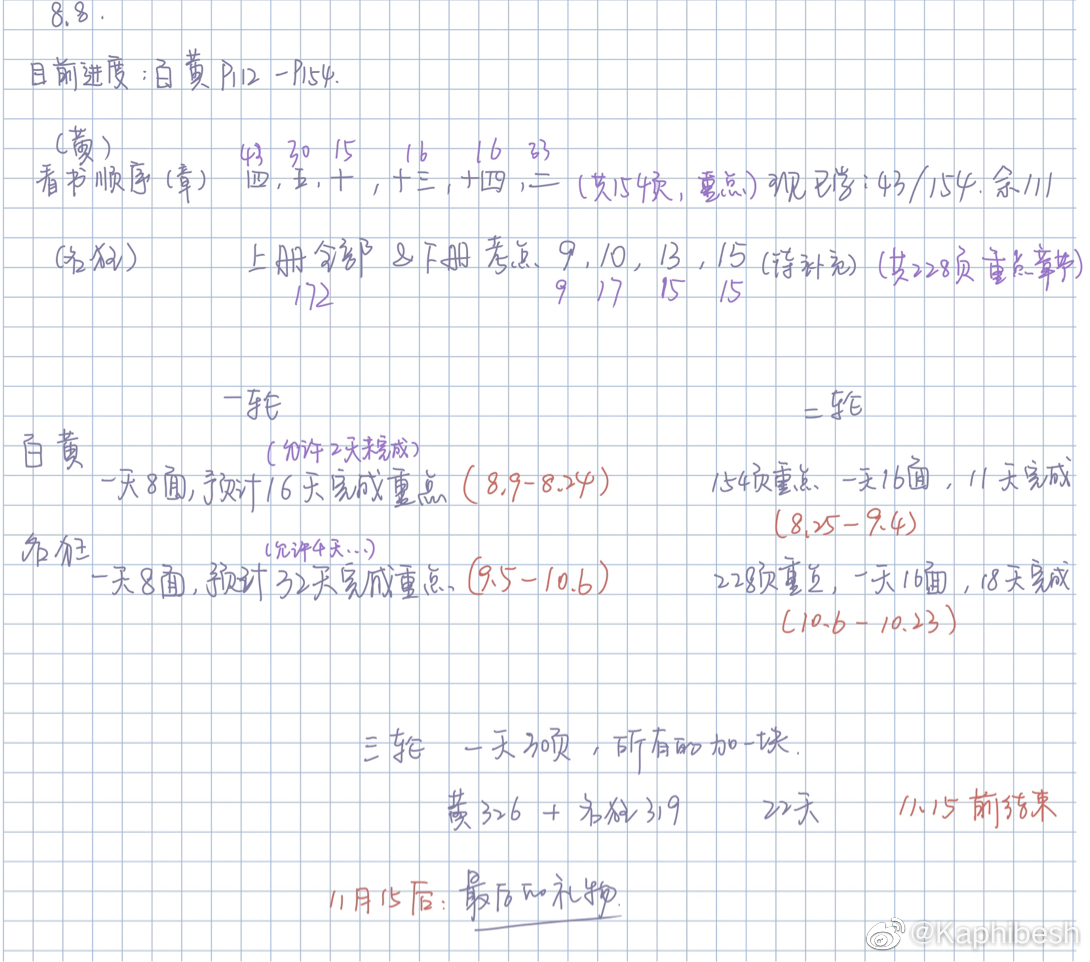 8.8.
目前进度：白黄 P112 -P154.
(黄)
43 30 15 16 16 33
看书顺序(章) 四，五，十，十三，十四，二 (共154页，重点) 现已学：43/154. 余111
(名狂) 上册全部 & 下册 考点 9, 10, 13, 15 (待补充) (共228页 重点章节)
172 9 17 15 15
一轮 二轮
白黄
(允许2天未完成)
一天8面，预计16天完成重点 (8.9-8.24) 154页重点 一天16面，11天完成
(8.25-9.4)
名狂 (允许4天...)
一天8面，预计32天完成重点. (9.5-10.6) 228页重点，一天16面，18天完成
(10.6-10.23)
三轮 一天30页，所有的加一块.
黄326 + 名狂319 22天 11.15前结束
11月15后：最后的礼物.
@Kaphibesh